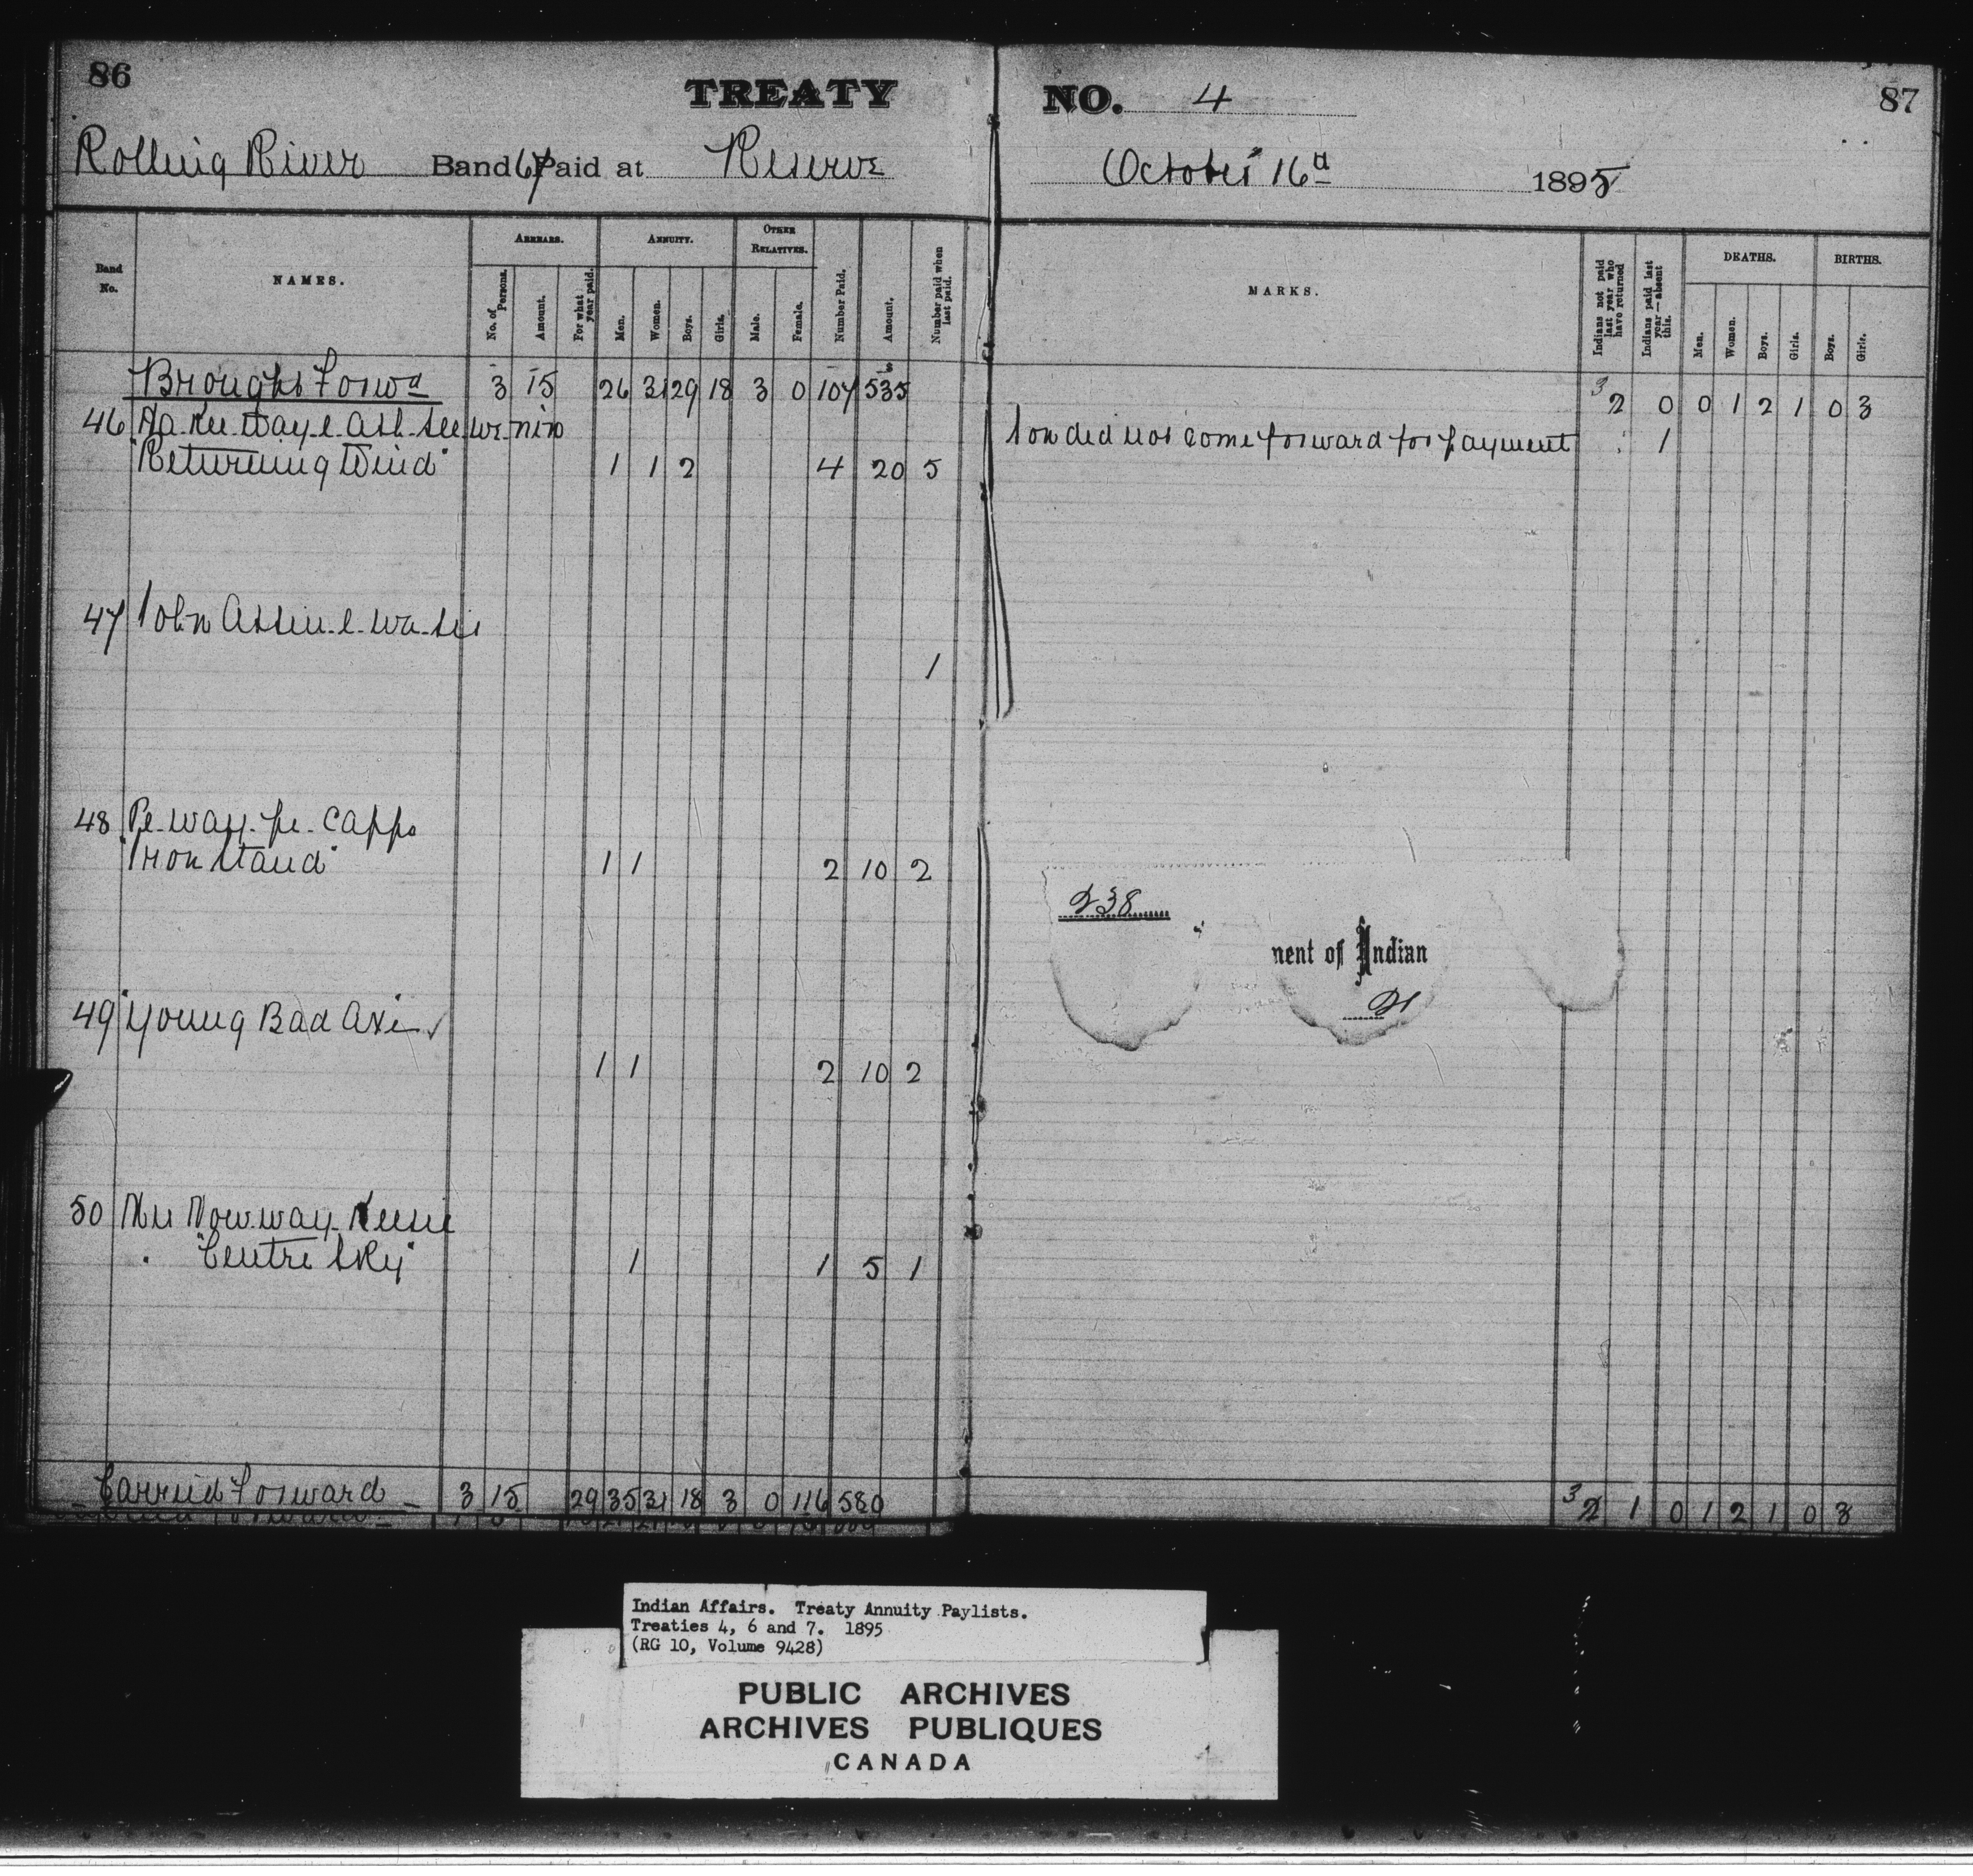 86
TREATY
Rolling River Band 67 Paid at Reserve
Band No.
NAMES.
ARREARS.
No. of Persons.
Amount.
For what year paid.
ANNUITY.
Men.
Women.
Boys.
Girls.
OTHER RELATIVES.
Male.
Female.
Number Paid.
Amount.
Number paid when last paid.
Brought Forwd 3 15 26 31 29 18 3 0 107 535
46
"Returning Wind" 1 1 2 4 20 5
47 John Assin-e-wa-sis
1
48 Pe-way-pe-Capps
"Iron Stand" 1 1 2 10 2
49 "Young Bad Axe
1 1 2 10 2
50
"Centre Sky" 1 1 5 1
Carried Forward 3 15 29 35 31 18 3 0 116 580
NO. 4
87
October 16th 1895
MARKS.
Indians not paid last year who have returned
Indians paid last year—absent this.
DEATHS.
Men.
Women.
Boys.
Girls.
BIRTHS.
Boys.
Girls.
3 2 0 0 1 2 1 0 3
Son did not come forward for payment 1
238
nent of Indian
3 2 1 0 1 2 1 0 3
Indian Affairs. Treaty Annuity Paylists.
Treaties 4, 6 and 7. 1895
(RG 10, Volume 9428)
PUBLIC ARCHIVES
ARCHIVES PUBLIQUES
CANADA